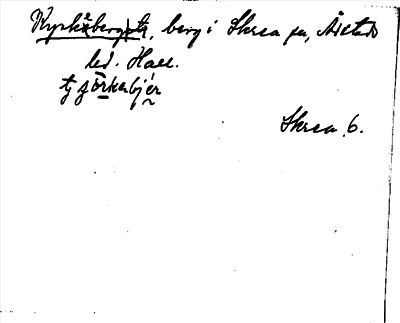 Kyrkåberget, berg i Skrea sn, Årstads
hd. Hall.
tjörkebjér
Skrea 6.